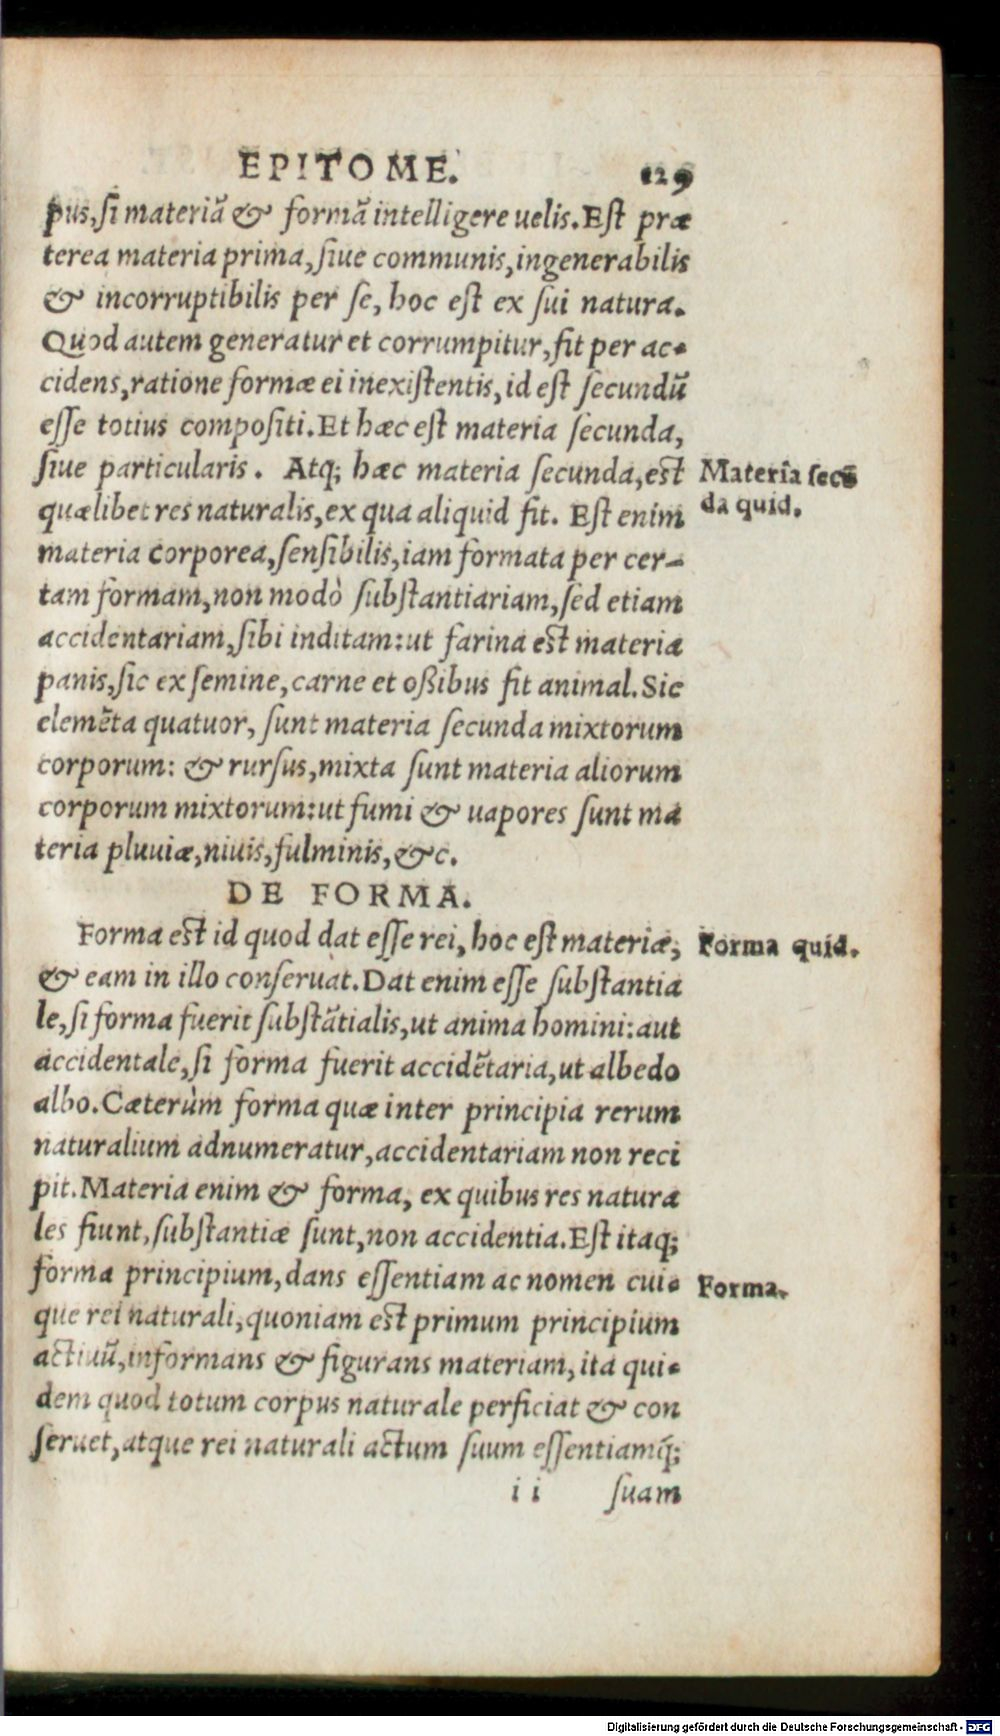 EPITOME. 129
pus, si materiā & formā intelligere uelis. Est præ
terea materia prima, siue communis, ingenerabilis
& incorruptibilis per se, hoc est ex sui natura.
Quod autem generatur et corrumpitur, fit per ac-
cidens, ratione formæ ei inexistentis, id est secundū
esse totius compositi. Et hæc est materia secunda,
siue particularis. Atq; hæc materia secunda, est
Materia secū
quælibet res naturalis, ex qua aliquid fit. Est enim
da quid.
materia corporea, sensibilis, iam formata per cer-
tam formam, non modò substantiariam, sed etiam
accidentariam, sibi inditam: ut farina est materia
panis, sic ex semine, carne et oßibus fit animal. Sic
elemēta quatuor, sunt materia secunda mixtorum
corporum: & rursus, mixta sunt materia aliorum
corporum mixtorum: ut fumi & uapores sunt ma
teria pluuiæ, niuis, fulminis, &c.
DE FORMA.
Forma est id quod dat esse rei, hoc est materiæ,
Forma quid.
& eam in illo conseruat. Dat enim esse substantia
le, si forma fuerit substātialis, ut anima homini: aut
accidentale, si forma fuerit accidētaria, ut albedo
albo. Cæterùm forma quæ inter principia rerum
naturalium adnumeratur, accidentariam non reci
pit. Materia enim & forma, ex quibus res natura
les fiunt, substantiæ sunt, non accidentia. Est itaq;
forma principium, dans essentiam ac nomen cui-
Forma.
que rei naturali, quoniam est primum principium
actiuū, informans & figurans materiam, ita qui-
dem quod totum corpus naturale perficiat & con
seruet, atque rei naturali actum suum essentiamq́;
i i suam
Digitalisierung gefördert durch die Deutsche Forschungsgemeinschaft - DFG